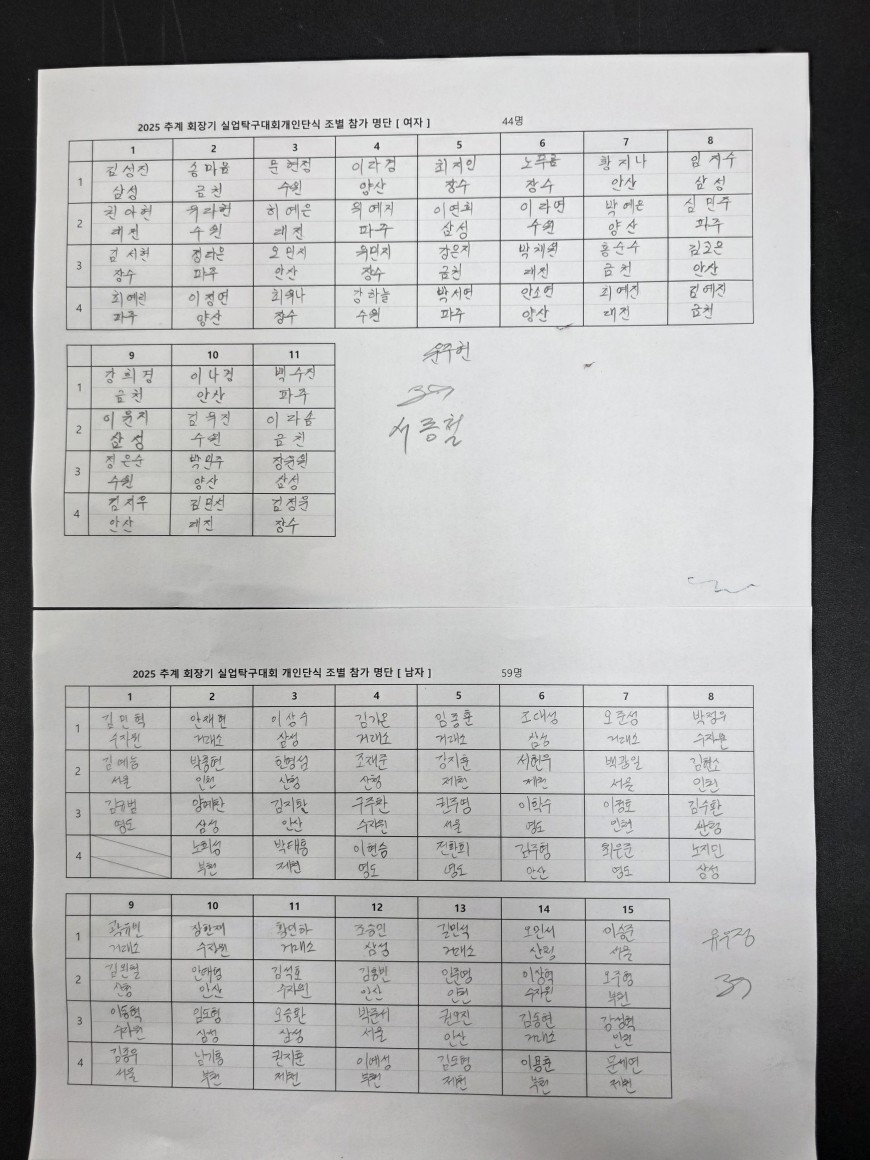 2025 추계 회장기 실업탁구대회개인단식 조별 참가 명단 [ 여자 ] 44명
1 2 3 4 5 6 7 8
1 김성진 송마음 문현정 이다경 최지인 노푸름 황지나 임지수
삼성 금천 수원 양산 장수 장수 안산 삼성
2 권아현 허예은 유예지 이연희 이라연 박예은 심민주
대전 수원 대전 파주 삼성 수원 양산 파주
3 김서현 정다은 오민지 유민지 강은지 박채원 홍순수 김고은
장수 파주 안산 장수 금천 대전 금천 안산
4 최예린 이정연 최유나 강하늘 박서연 안소연 최예진 김예진
파주 양산 장수 수원 파주 양산 대전 금천
9 10 11
1 강희경 이나경 백수진
금천 안산 파주
2 이윤지 김유진 이다솜
삼성 수원 금천
3 정은순 박민주
수원 양산 삼성
4 김지우 김민선 김정윤
안산 대전 장수
서동철
2025 추계 회장기 실업탁구대회 개인단식 조별 참가 명단 [ 남자 ] 59명
1 2 3 4 5 6 7 8
1 김민혁 안재현 이상수 김가온 임종훈 조대성 오준성 박정우
수자원 거래소 삼성 거래소 거래소 삼성 거래소 수자원
2 김예능 박종현 천영섭 조재준 강지훈 서현우 백광일 김현소
서울 인천 산청 산청 제천 제천 서울 인천
3 김규범 양예찬 김지환 구주찬 권주영 이학수 이정호 김수환
영도 삼성 안산 수자원 서울 영도 인천 산청
4 노희성 박태홍 이현승 전환희 김주형 최은준 노지민
부천 제천 영도 영도 안산 영도 삼성
9 10 11 12 13 14 15
1 곽유빈 장한재 황민하 조승민 길민석 오민서 이승준
거래소 수자원 거래소 삼성 거래소 산청 서울
2 김원빈 안태영 김석호 김홍빈 인준영 이상협 오주형
산청 안산 수자원 안산 인천 수자원 부천
3 이동혁 임도형 오승환 박준서 권오진 김동현 강성혁
수자원 삼성 삼성 서울 안산 거래소 인천
4 김종우 남기홍 권지훈 이예성 김도형 이용훈 문세연
서울 부천 제천 부천 제천 부천 제천